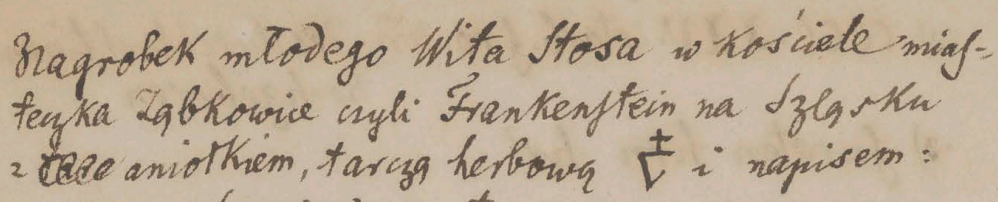 Nagrobek młodego Wita Stosa w kościele mias-
teczka Ząbkowice czyli Frankenstein na Szląsku
z aniołkiem, tarczą herbową i napisem: